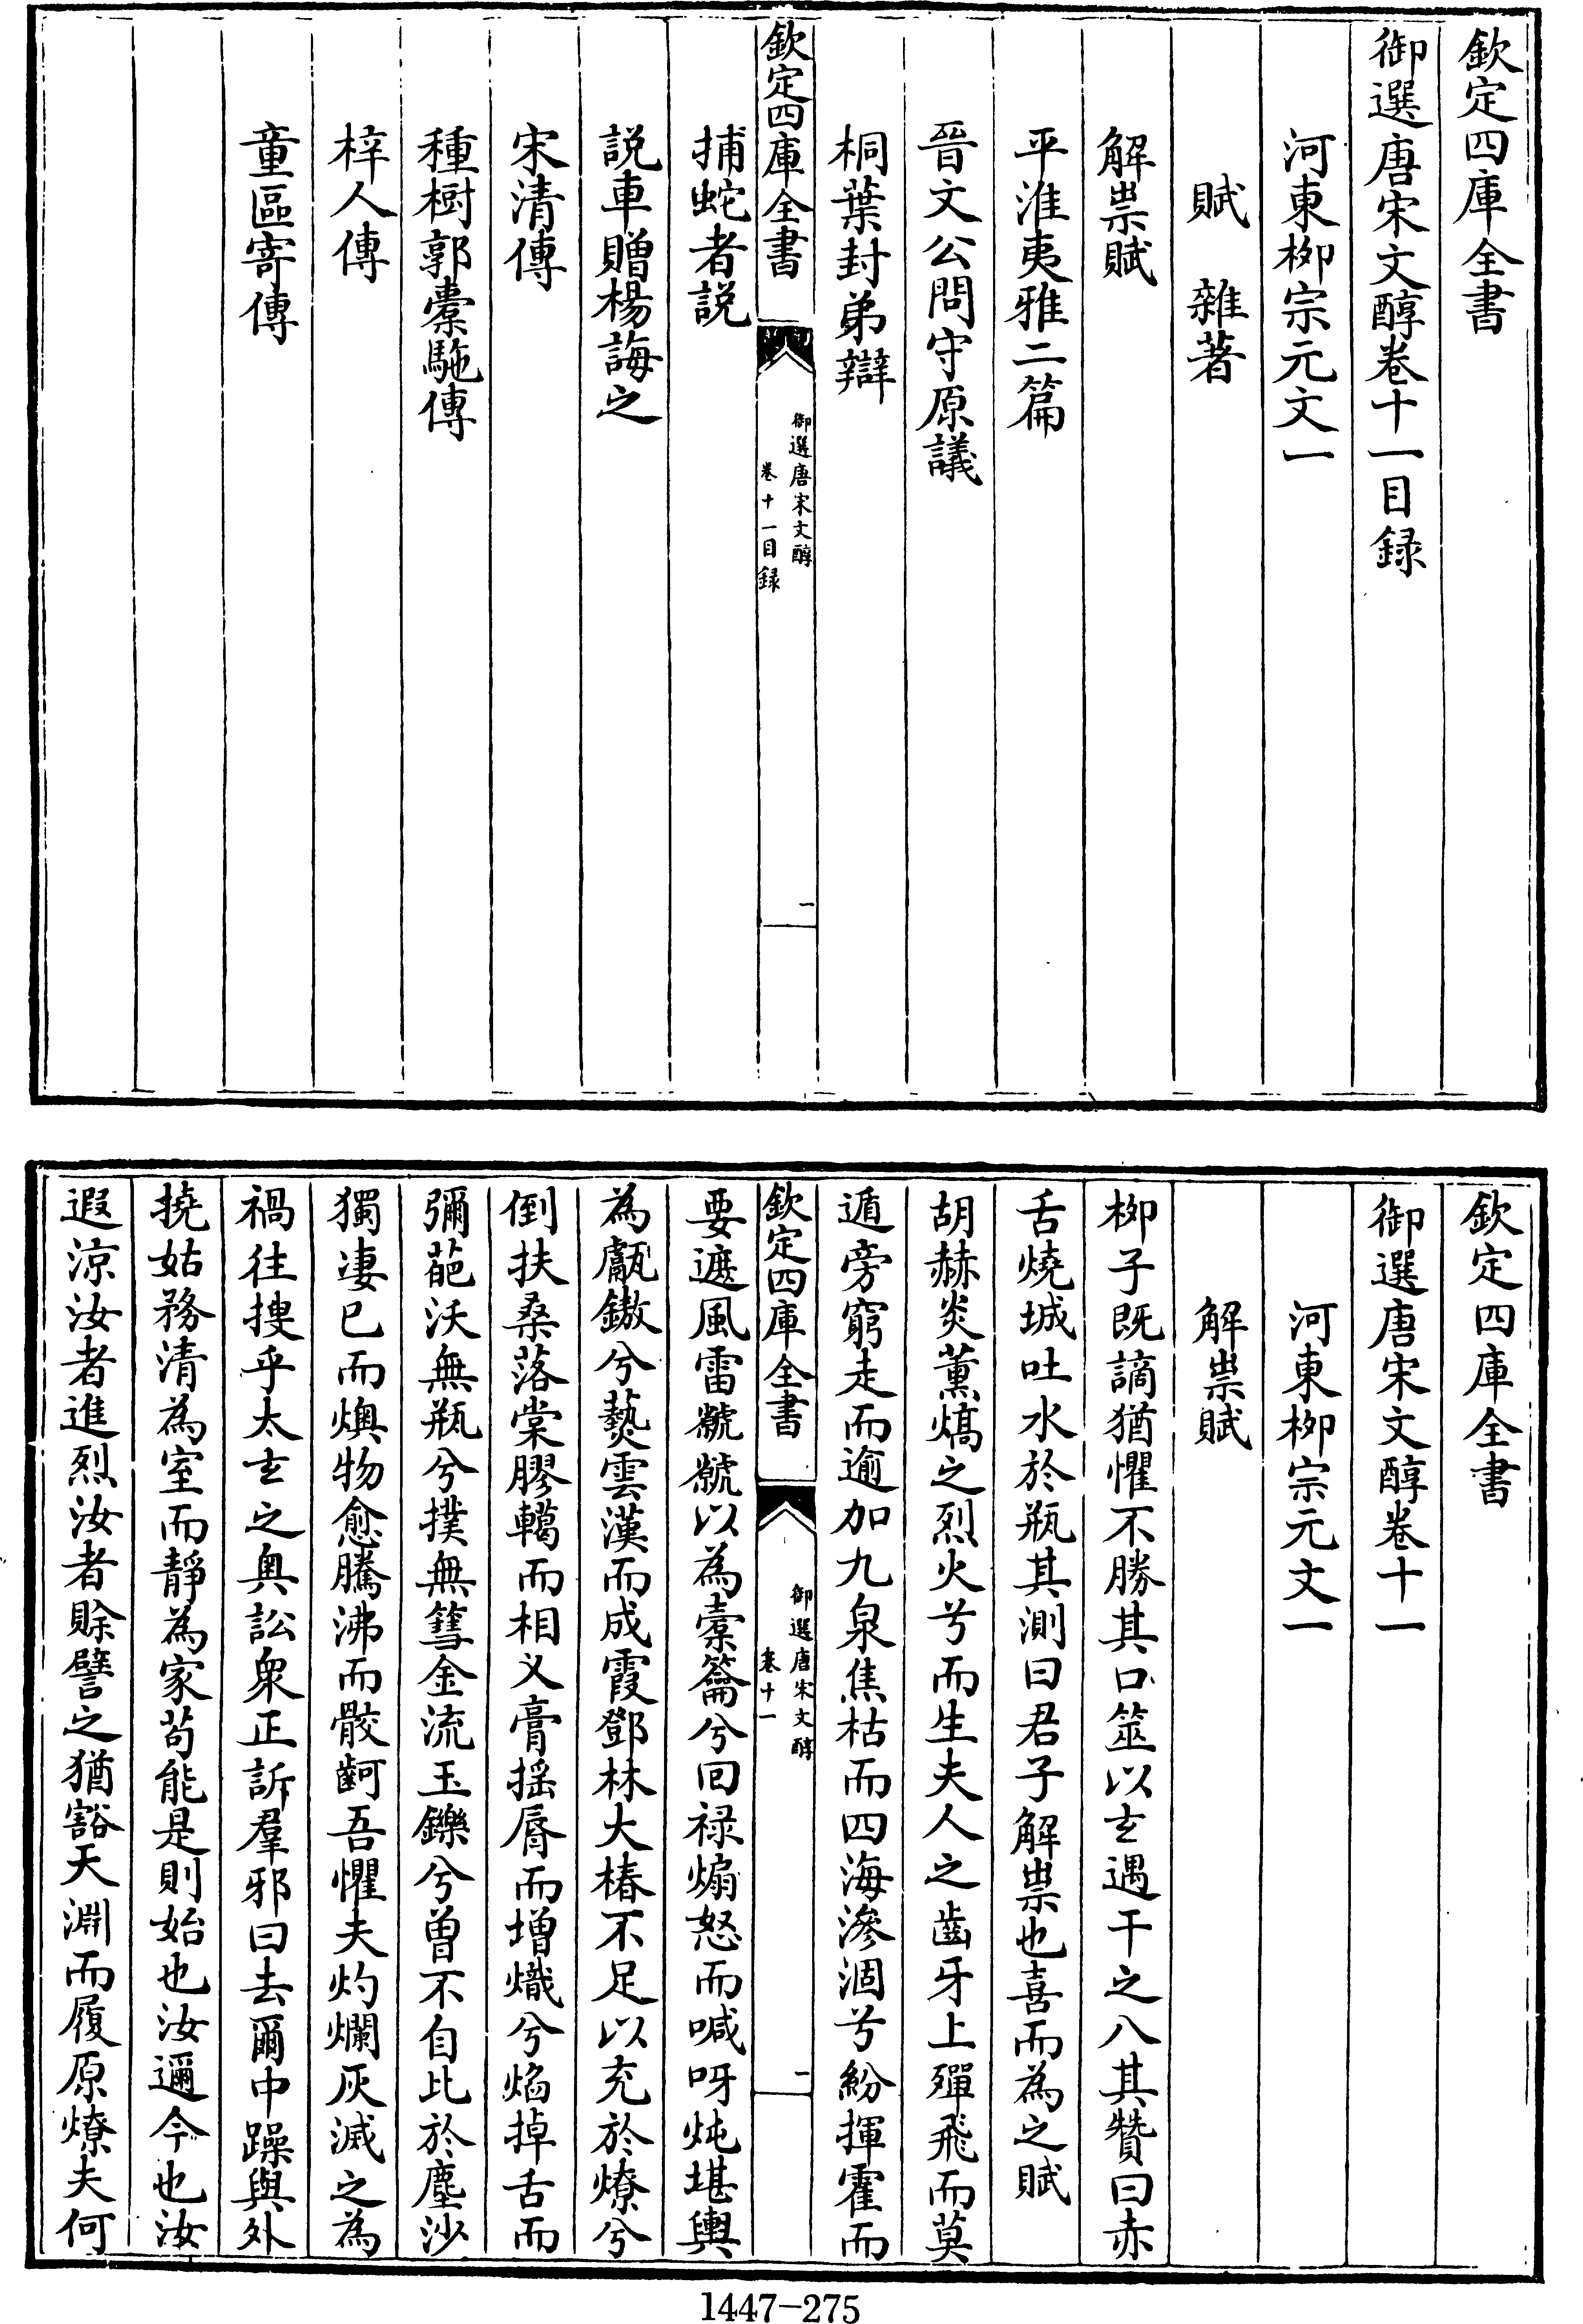 欽定四庫全書
御選唐宋文醇卷十一目録
河東栁宗元文一
賦　雜著
解祟賦
平淮夷雅二篇
晉文公問守原議
桐葉封弟辯
欽定四庫全書
御選唐宋文醇
卷十一目録
一
捕蛇者説
説車贈楊誨之
宋清傳
種樹郭橐駞傳
梓人傳
童區寄傳
欽定四庫全書
御選唐宋文醇卷十一
河東栁宗元文一
解祟賦
栁子既謫猶懼不勝其口筮以𤣥遇干之八其贊曰赤
舌燒城吐水於瓶其測曰君子解祟也喜而為之賦
胡赫炎薰熇之烈火兮而生夫人之齒牙上殫飛而莫
遁旁窮走而逾加九泉焦枯而四海滲涸兮紛揮霍而
欽定四庫全書
御選唐宋文醇
卷十一
一
要遮風雷唬唬以為橐籥兮回禄煽怒而喊呀炖堪輿
為甗鏉兮爇雲漢而成霞鄧林大椿不足以充於燎兮
倒扶桑落棠膠轕而相义膏摇脣而增熾兮焰掉舌而
彌葩沃無瓶兮撲無篲金流玉鑠兮曾不自比於塵沙
獨凄已而燠物愈騰沸而骹䶗吾懼夫灼爛灰滅之為
禍往搜乎太𤣥之奥訟衆正訴羣邪曰去爾中躁與外
撓姑務清為室而靜為家苟能是則始也汝邇今也汝
遐凉汝者進烈汝者賖譬之猶豁天淵而履原燎夫何
1447-275